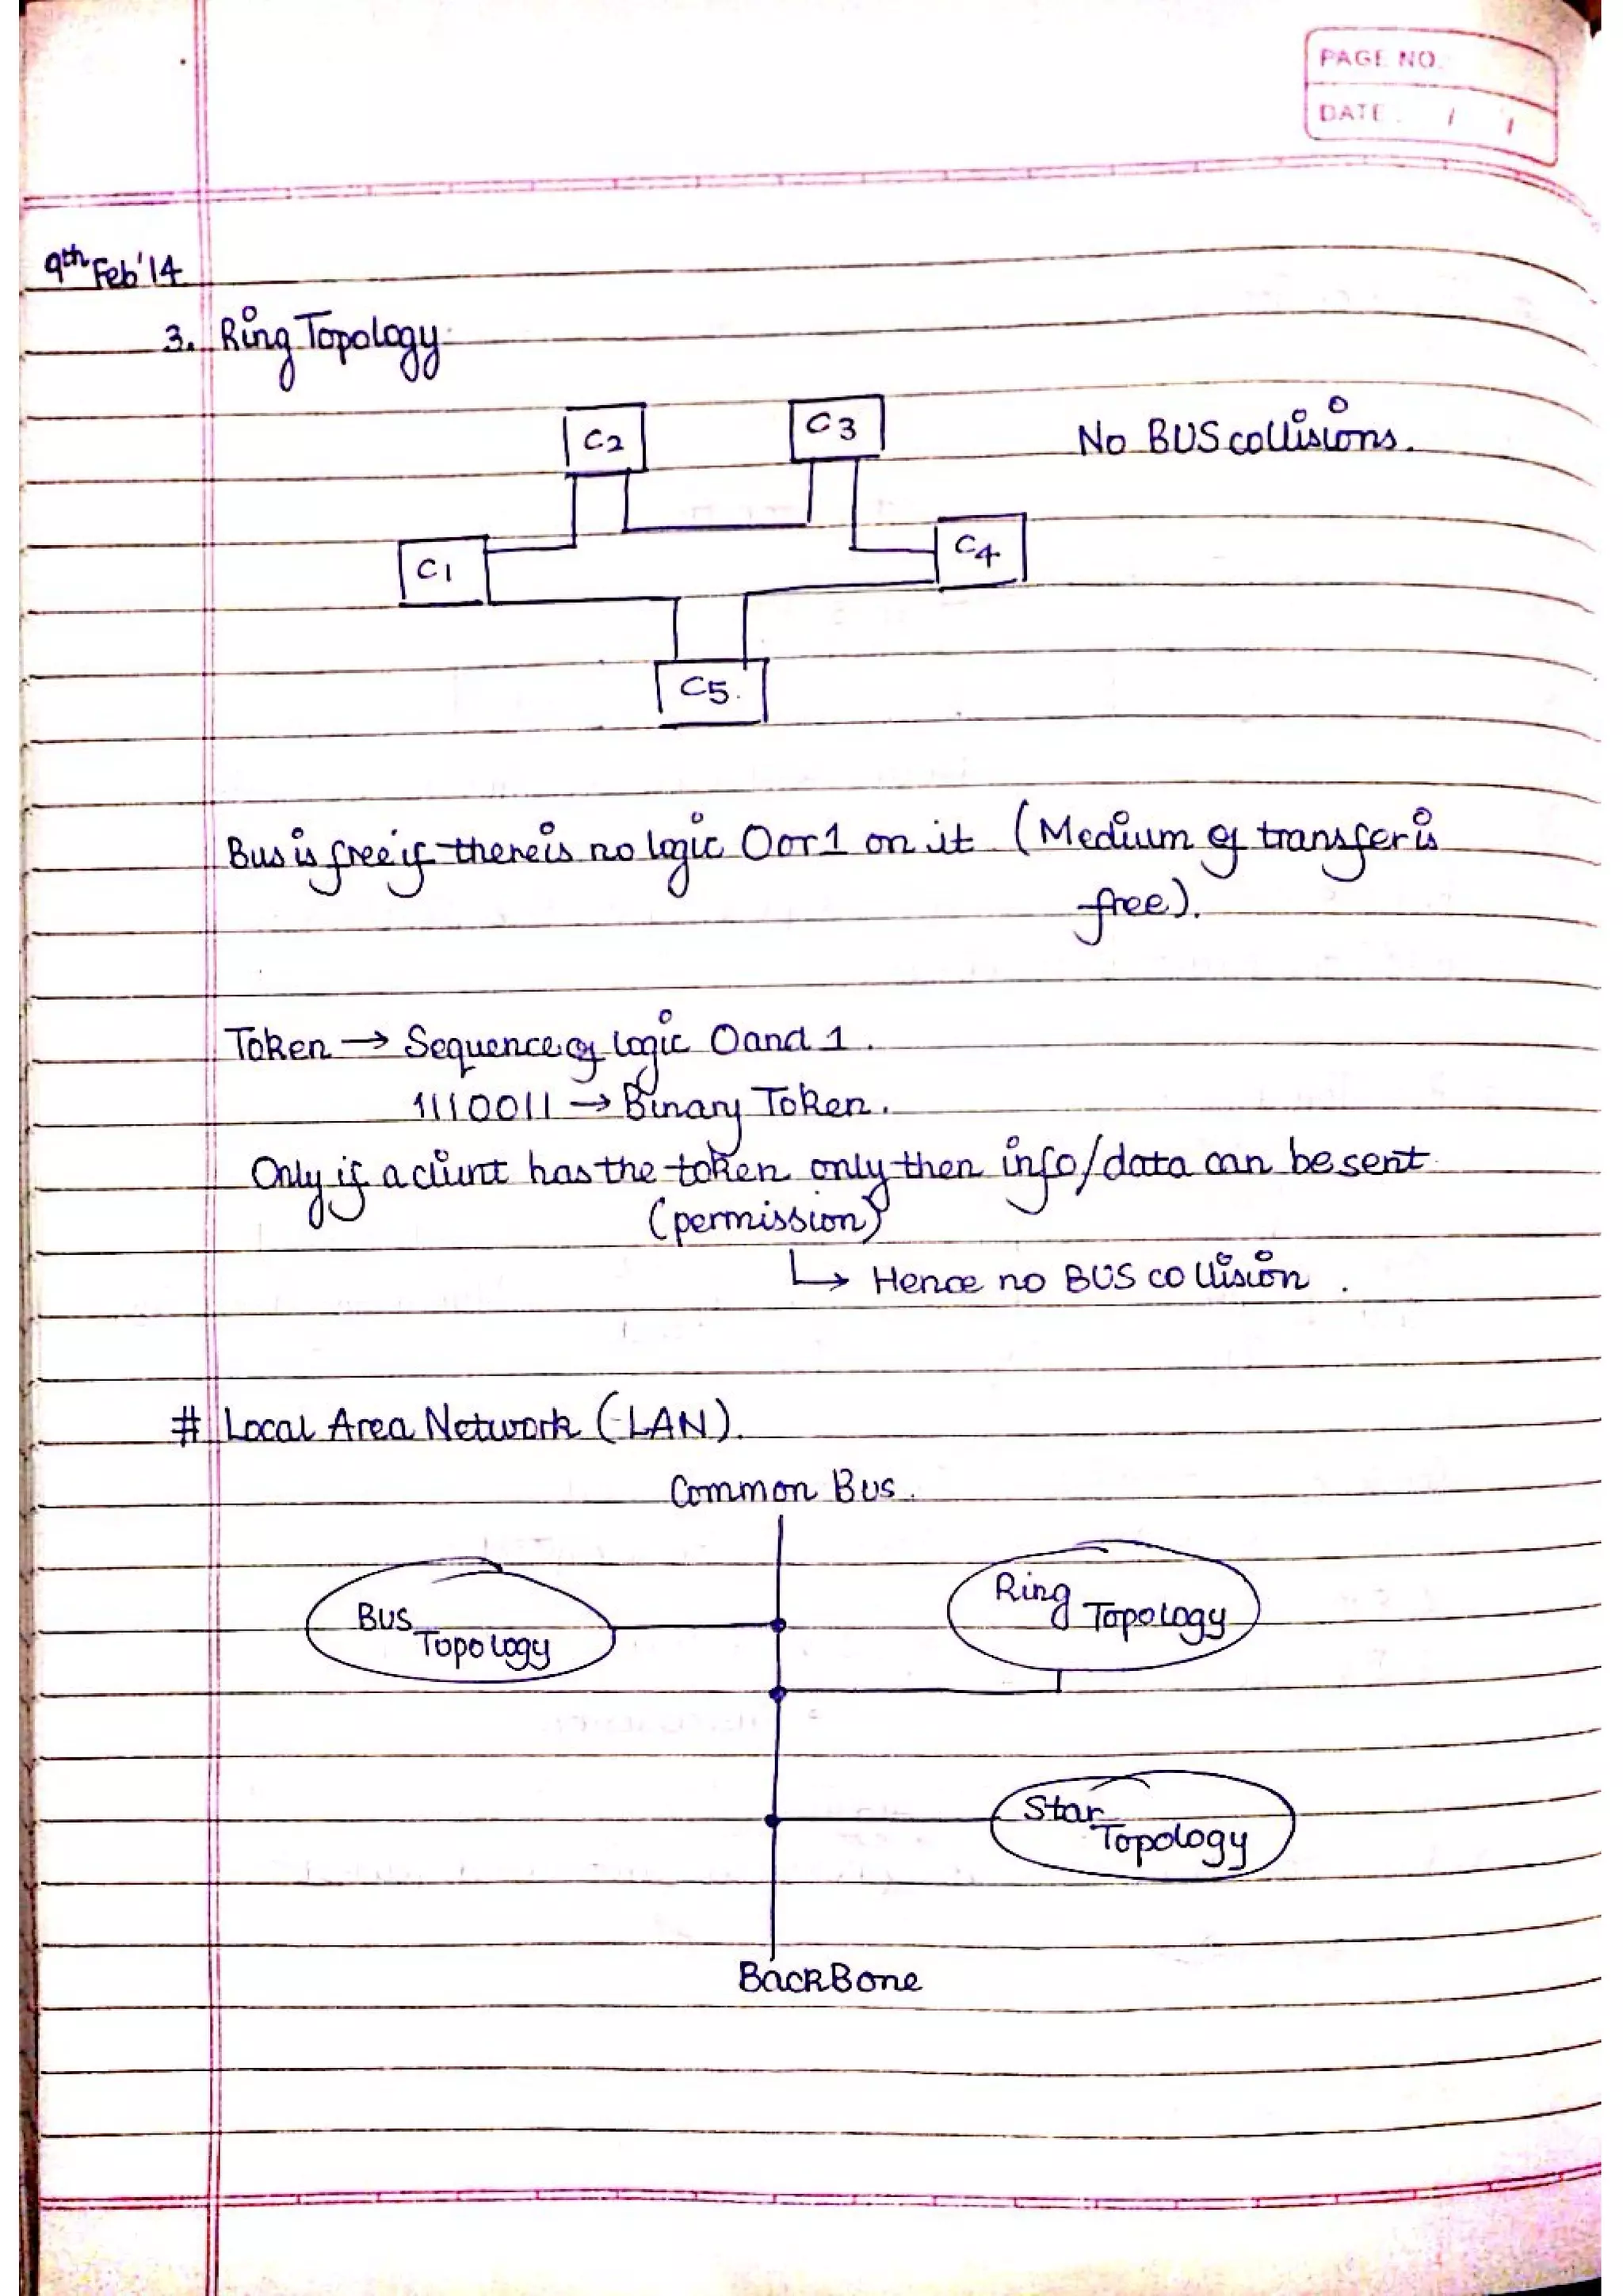 PAGE NO.
DATE / /
9th Feb'14
3. Ring Topology
C2
C3
No BUS collisions.
C1
C4
C5.
Bus is free if there is no logic 0 or 1 on it (Medium of transfer is
free).
Token → Sequence of logic 0 and 1.
1110011 → Binary Token.
Only if a client has the token only then info/data can be sent
(permission)
↳ Hence no BUS collision.
# Local Area Network (LAN).
Common Bus.
BUS
Topology
Ring
Topology
Star
Topology
BackBone